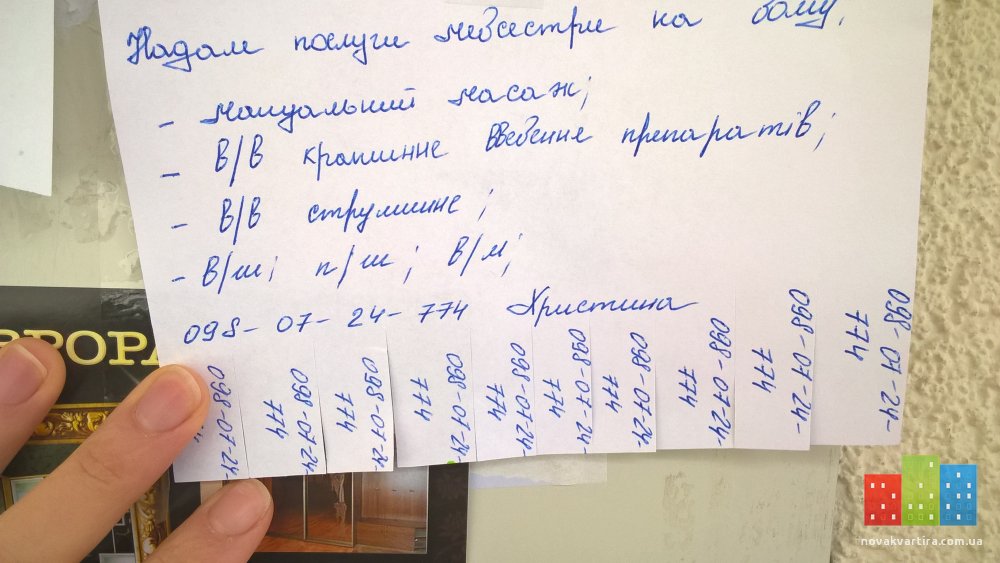 Надам послуги медсестри на дому.
- мануальний масаж;
- В/В крапинне введення препаратів;
- В/В струминне;
- В/ш; п/ш; в/м;
098- 07- 24- 774 Христина
098-07-24-
098-07-24-
774
098-07-24-
774
098-07-24-
774
098-07-24-
774
098-07-24-
774
098-07-24-
774
098-07-24-
774
098-07-24-
774
098-07-24-
774
novakvartira.com.ua